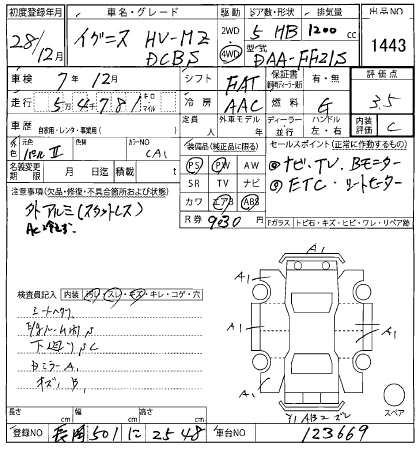 初度登録年月 車名・グレード 駆動 ドア数・形状 排気量 出品NO
28/12月 イグニス HV-MZ DCBS 2WD 4WD 5 HB 1200 cc 1443
型式 DAA-FF21S
車検 7年12月 シフト FAT 保証書 有・無 評価点
走行 5万4781 キロ マイル 冷房 AAC 燃料 G 3.5
車歴 自家用・レンタ・事業用( ) 定員 人 外車モデル 年 ディーラー 並行 ハンドル 左・右 内装評価 C
内外色 元色 パールⅡ 色替 カラーNO CA1 装備品(純正品に限る) セールスポイント(正常に作動するもの)
名義変更期限 月 日迄 積載 t PS PW AW ◎ナビ・TV.Bモニター
SR TV ナビ ◎ETC・シートヒーター
注意事項(欠品・修復・不具合箇所および状態) カワ エアB ABS
外アルミ(スタットレス) R券 9830 Fガラス トビ石・キズ・ヒビ・ワレ・リペア跡
検査員記入 内装 汚レ・スレ・キズ・キレ・コゲ・穴
下廻りSC
ミラーA1
キズ、B1
A1
A1 A1
A1 A1
A1
スペア
長さ cm 幅 cm 高さ cm
登録NO 長岡 501 に 2548 車台NO 123669